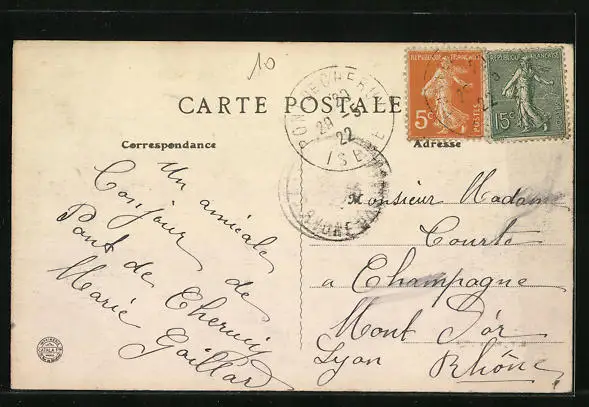 10
CARTE POSTALE
Correspondance
Adresse
REPUBLIQUE FRANÇAISE
5c
POSTES
REPUBLIQUE FRANÇAISE
15c
28 -5
22
ISERE
22
RHONE
Un amicale
Bonjour de
Pont de Cheruy
Marie Gaillard
Monsieur Madame
Courte
a Champagne
Mont d'Or
Lyon Rhône